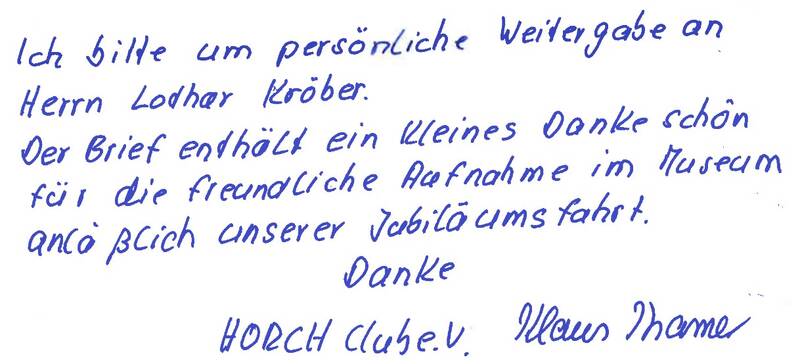 Ich bitte um persönliche Weitergabe an
Herrn Lothar Kröber.
Der Brief enthält ein kleines Danke schön
für die freundliche Aufnahme im Museum
anläßlich unserer Jubiläumsfahrt.
Danke
HORCH Club e.V. Klaus Thamer